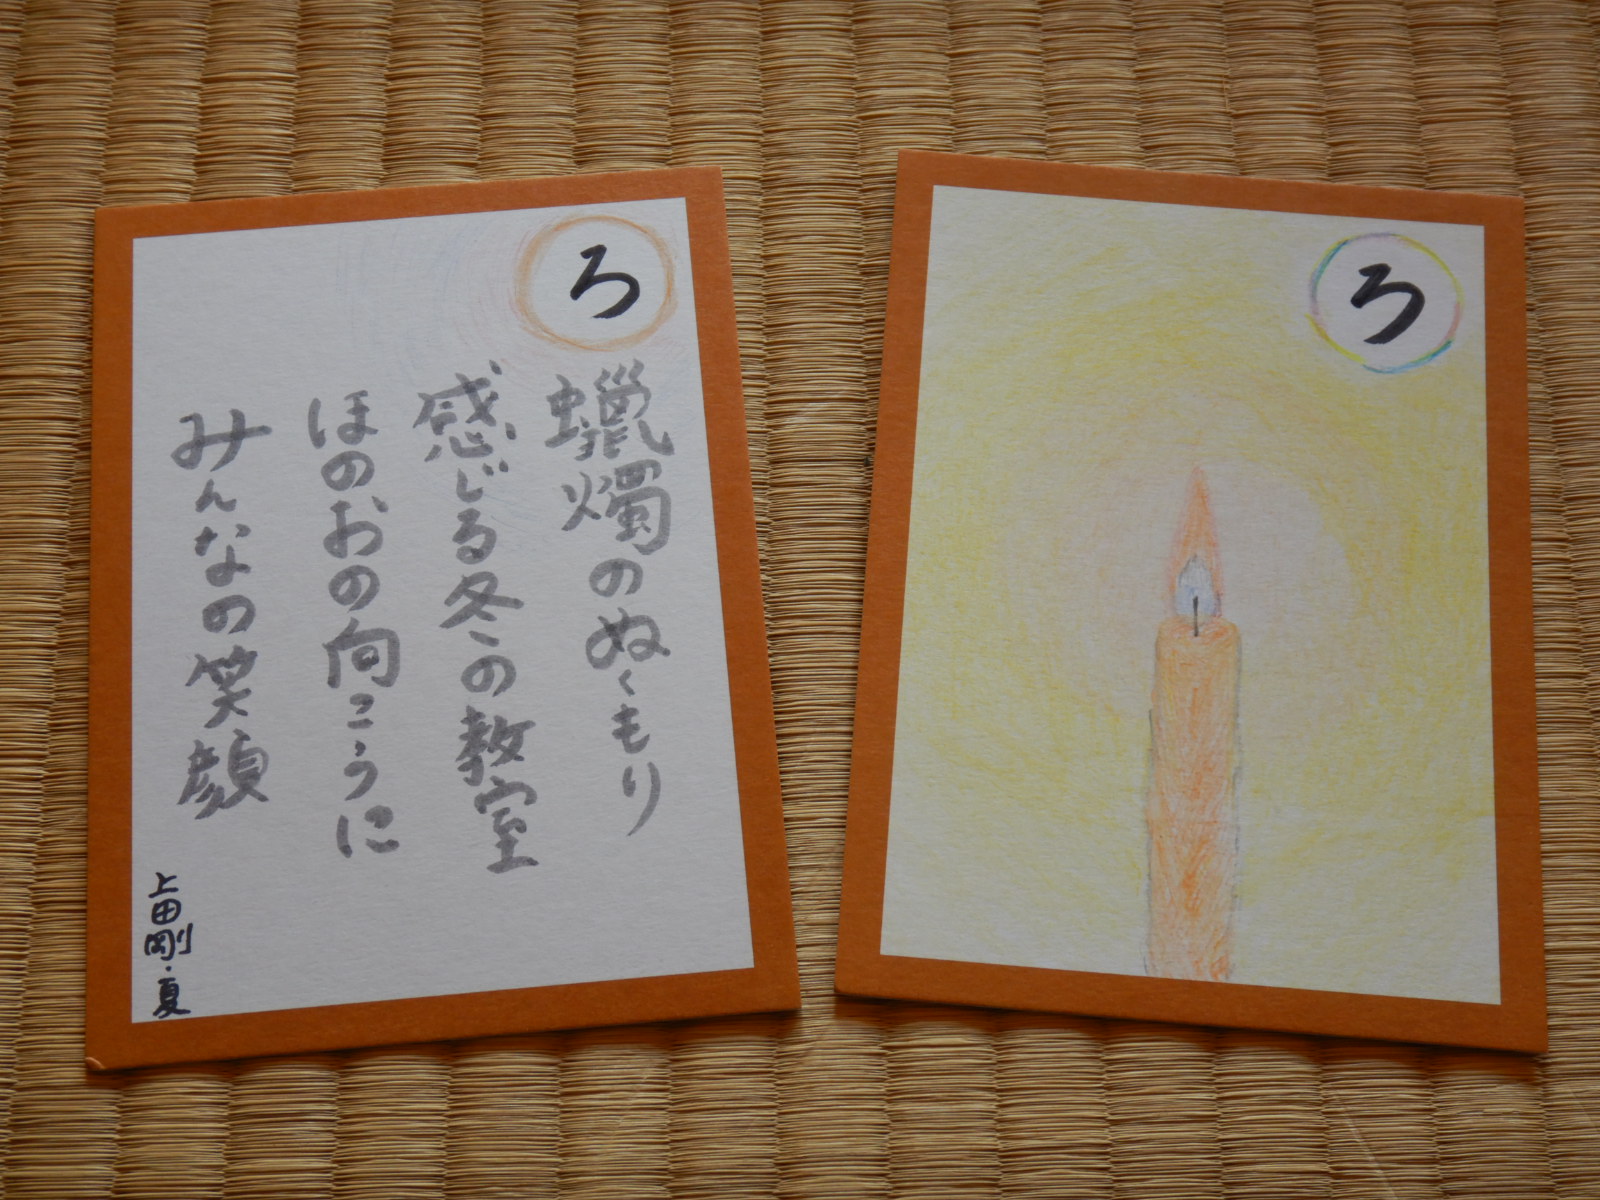 ろ
蝋燭のぬくもり
感じる冬の教室
ほのおの向こうに
みんなの笑顔
上田剛・夏
ろ